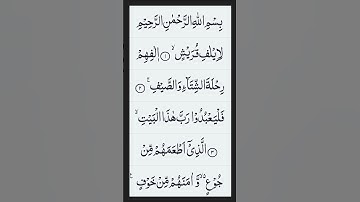 بِسْمِ اللهِ الرَّحْمٰنِ الرَّحِيْمِ
لِاِيْلٰفِ قُرَيْشٍ ۙ‏ ﴿۱﴾ اٖلٰفِهِمْ
رِحْلَةَ الشِّتَآءِ وَالصَّيْفِ ۚ‏ ﴿۲﴾
فَلْيَعْبُدُوْا رَبَّ هٰذَا الْبَيْتِ ۙ‏
﴿۳﴾ الَّذِيْۤ اَطْعَمَهُمْ مِّنْ
جُوْعٍ ۙ وَّاٰمَنَهُمْ مِّنْ خَوْفٍ